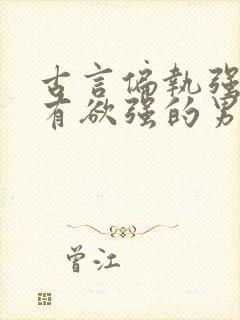 古言偏执强
有欲强的男
曾江